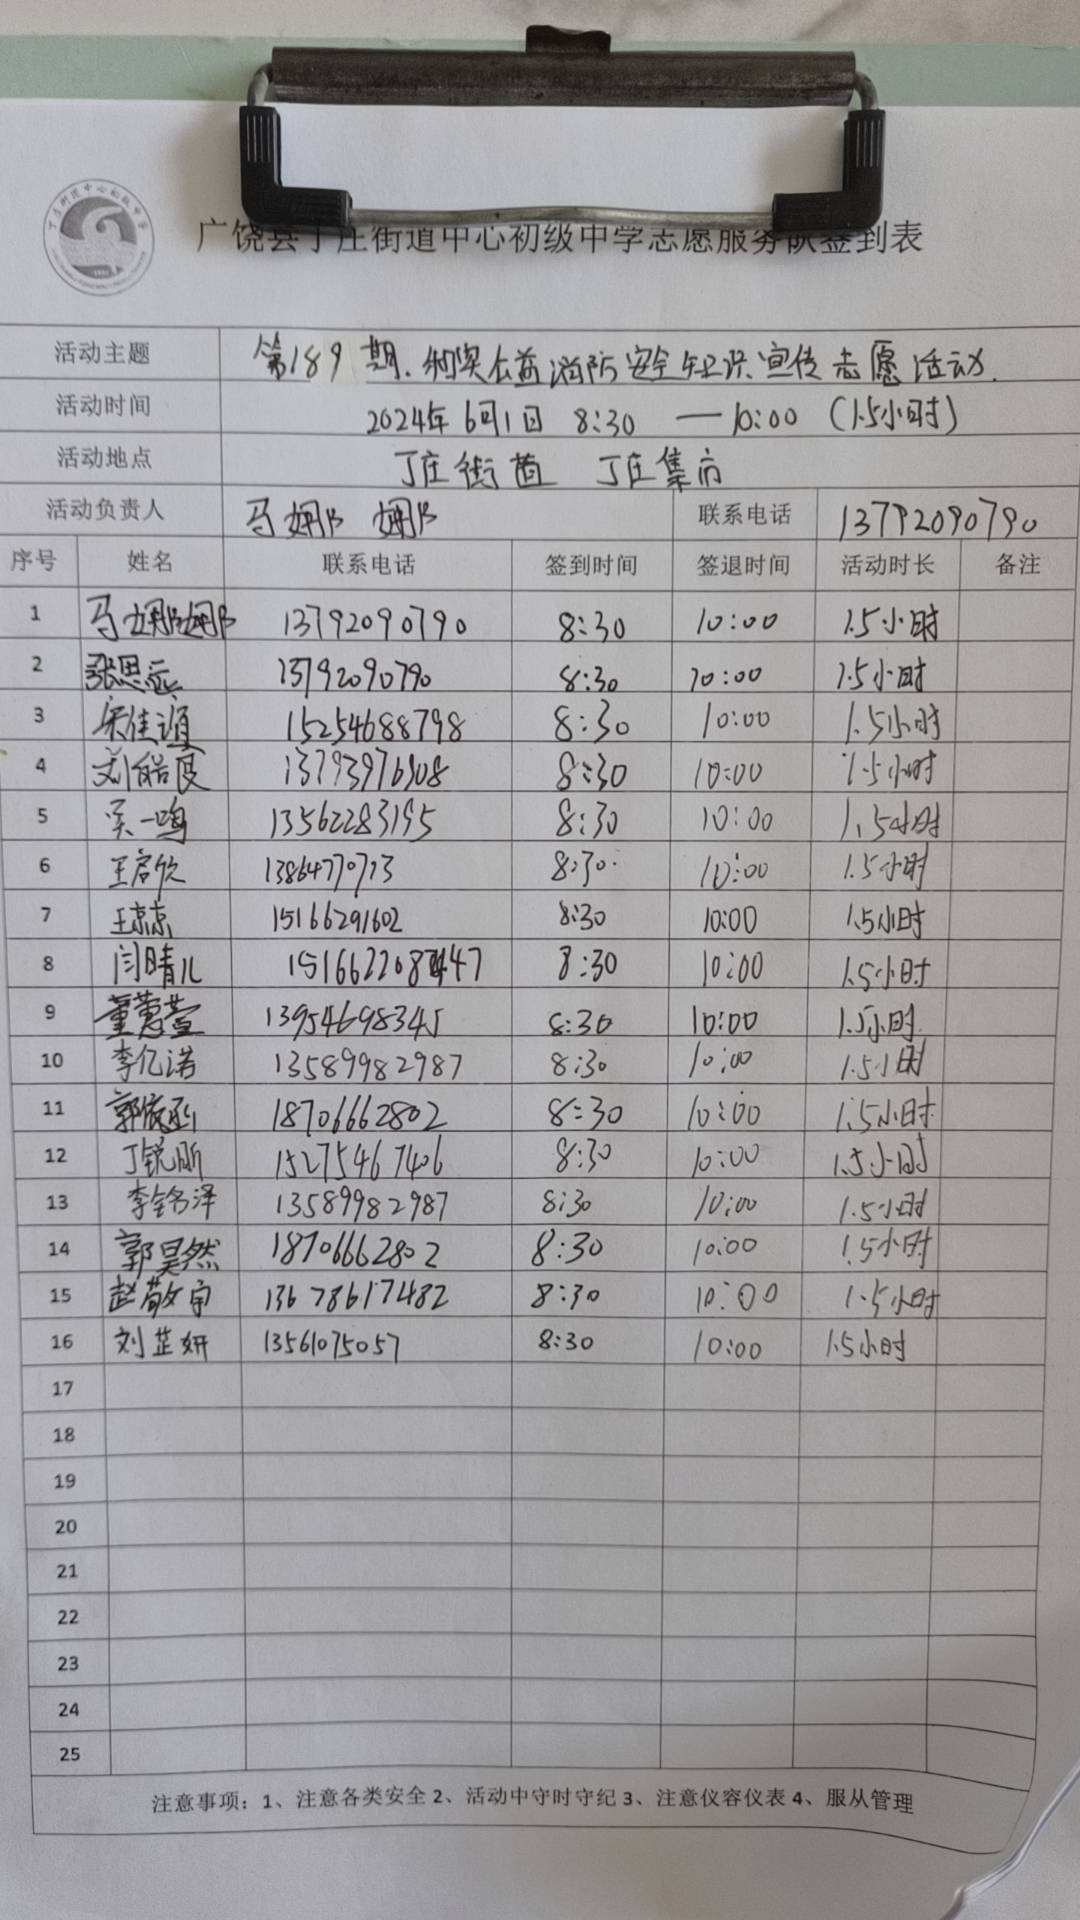 广饶县丁庄街道中心初级中学志愿服务队签到表
活动主题 第189期.利奥公益消防安全知识宣传志愿活动.
活动时间 2024年6月1日 8:30 — 10:00 (1.5小时)
活动地点 丁庄街道 丁庄集市
活动负责人 马娜娜 联系电话 13792090790
序号 姓名 联系电话 签到时间 签退时间 活动时长 备注
1 马娜娜 13792090790 8:30 10:00 1.5小时
2 张思远 13792090790 8:30 10:00 1.5小时
3 15254688798 8:30 10:00 1.5小时
4 13793976908 8:30 10:00 1.5小时
5 吴一鸣 13562283195 8:30 10:00 1.5小时
6 王启欣 13864770713 8:30 10:00 1.5小时
7 王京京 15166291602 8:30 10:00 1.5小时
8 闫晴儿 8:30 10:00 1.5小时
9 董蕙萱 13954698345 8:30 10:00 1.5小时
10 李亿诺 13589982987 8:30 10:00 1.5小时
11 郭依函 18706662802 8:30 10:00 1.5小时
12 丁锐昕 15275467406 8:30 10:00 1.5小时
13 李铭泽 13589982987 8:30 10:00 1.5小时
14 郭昊然 18706662802 8:30 10:00 1.5小时
15 赵敬宇 13678617482 8:30 10:00 1.5小时
16 刘芷妍 13561075057 8:30 10:00 1.5小时
17
18
19
20
21
22
23
24
25
注意事项：1、注意各类安全 2、活动中守时守纪 3、注意仪容仪表 4、服从管理